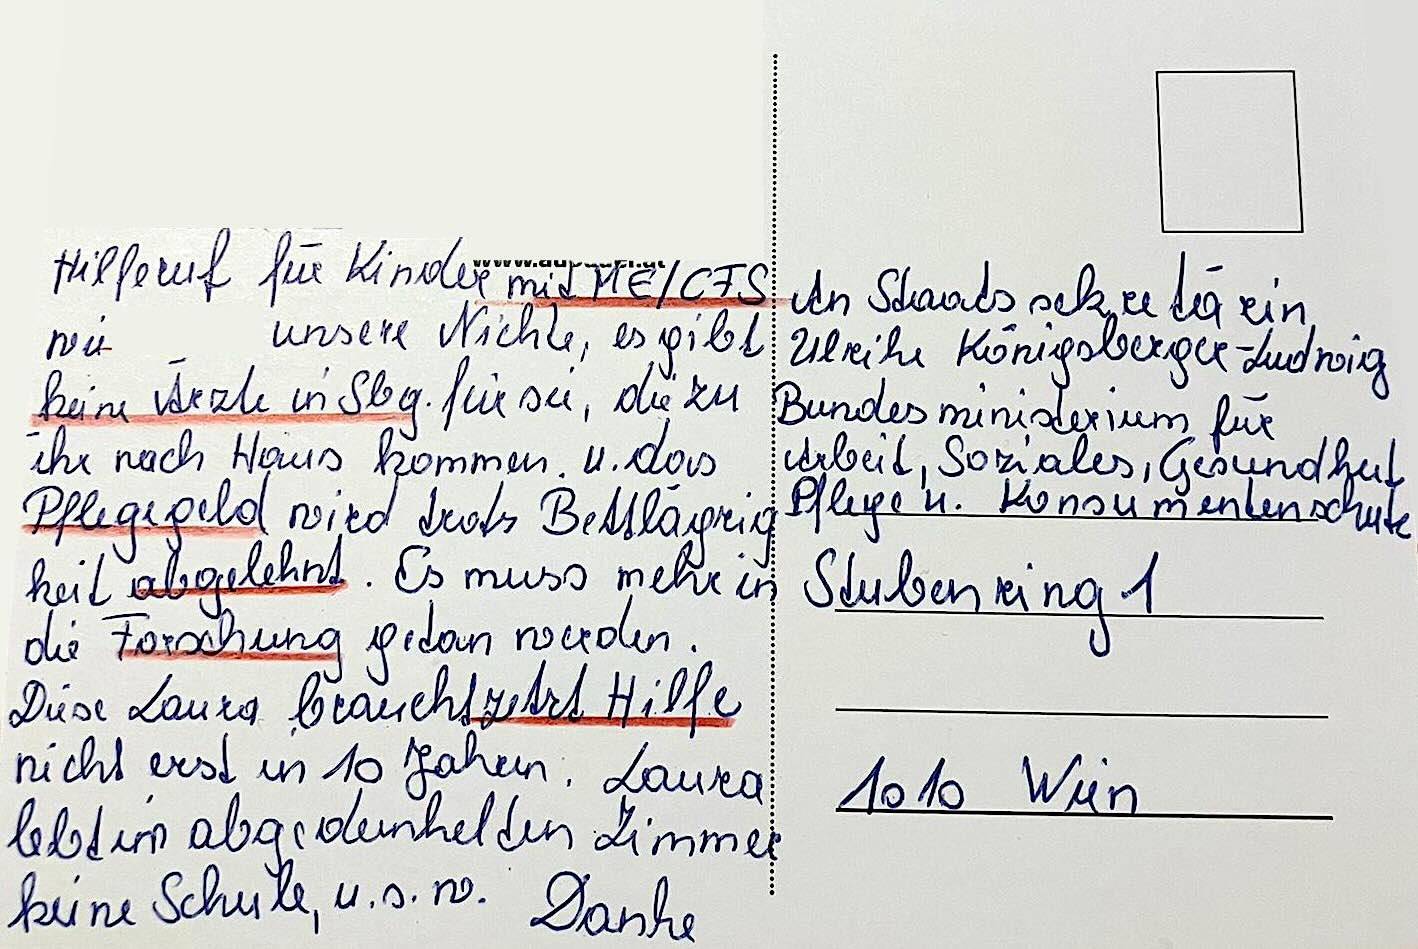 Hilferuf für Kinder mit ME/CFS
wie unsere Nichte, es gibt
keine Ärzte in Sbg. für sie, die zu
ihr nach Haus kommen. u. das
Pflegegeld wird trots Bettlägrig
keit abgelehnt. Es muss mehr in
die Forschung getan werden.
Diese Laura braucht jetzt Hilfe
nicht erst in 10 Jahren. Laura
lebt im abgedunkelten Zimmer
keine Schule, u.s.w. Danke
An Staatssekretärin
Ulrike Königsberger-Ludwig
Bundesministerium für
Arbeit, Soziales, Gesundheit
Pflege u. Konsumentenschutz
Stubenring 1
1010 Wien